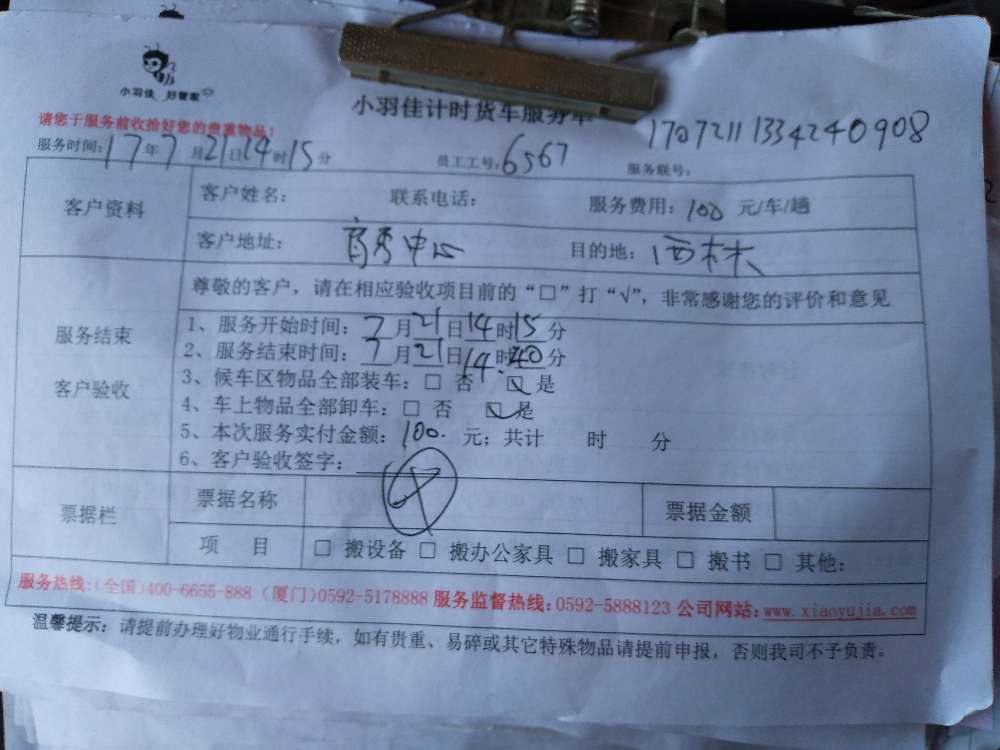 小羽佳 好管家
小羽佳计时货车服务单
请您于服务前收拾好您的贵重物品!
1707211334240908
服务时间:17年7月21日14时15分 员工工号:6567 服务联号:
客户资料
客户姓名: 联系电话: 服务费用:100 元/车/趟
客户地址: 中心 目的地:西林
服务结束
客户验收
尊敬的客户，请在相应验收项目前的“□”打“√”，非常感谢您的评价和意见
1、服务开始时间:7月21日14时15分
2、服务结束时间:7月21日14时40分
3、候车区物品全部装车:□ 否 ☑ 是
4、车上物品全部卸车:□ 否 ☑ 是
5、本次服务实付金额:100. 元；共计 时 分
6、客户验收签字:
票据栏
票据名称 票据金额
项 目 □ 搬设备 □ 搬办公家具 □ 搬家具 □ 搬书 □ 其他:
服务热线:(全国)400-6655-888（厦门)0592-5178888 服务监督热线:0592-5888123 公司网站:www.xiaoyujia.com
温馨提示:请提前办理好物业通行手续，如有贵重、易碎或其它特殊物品请提前申报，否则我司不予负责。